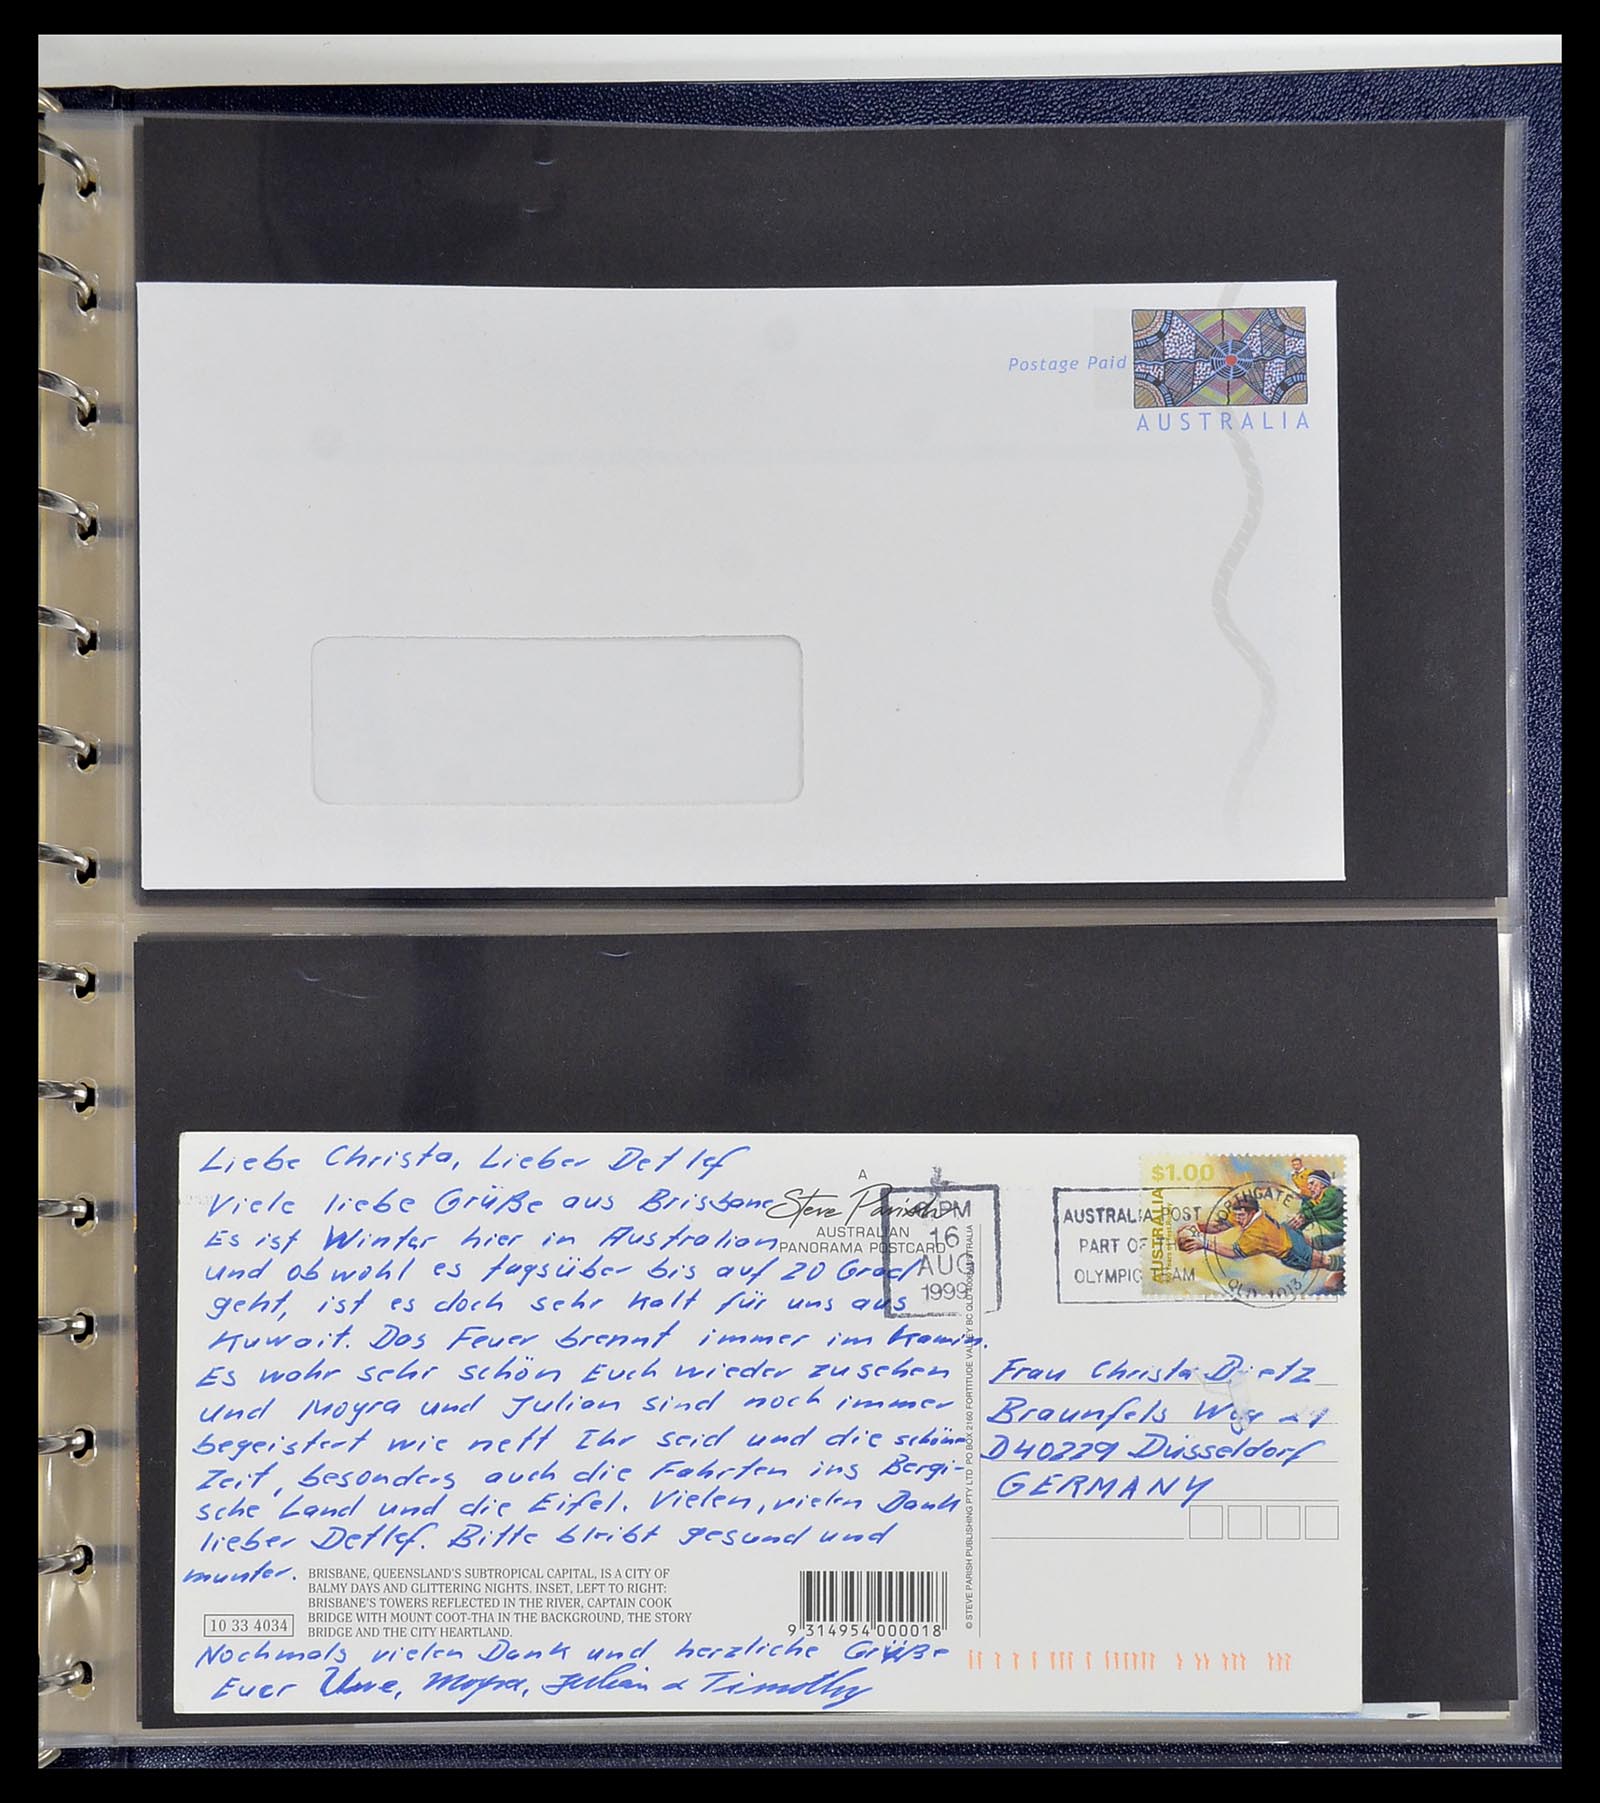 Postage Paid
AUSTRALIA
Liebe Christa, Lieber Detlef
Viele liebe Grüße aus Brisbane
Es ist Winter hier in Australien
und obwohl es tagsüber bis auf 20 Grad
geht, ist es doch sehr kalt für uns aus
Kuwait. Das Feuer brennt immer im Kamin.
Es wahr sehr schön Euch wieder zu sehen
und Moyra und Julian sind noch immer
begeistert wie nett Ihr seid und die schöne
Zeit, besonders auch die Fahrten ins Bergi-
sche Land und die Eifel. Vielen, vielen Dank
lieber Detlef. Bitte bleibt gesund und
munter.
BRISBANE, QUEENSLAND'S SUBTROPICAL CAPITAL, IS A CITY OF
BALMY DAYS AND GLITTERING NIGHTS. INSET, LEFT TO RIGHT:
BRISBANE'S TOWERS REFLECTED IN THE RIVER, CAPTAIN COOK
BRIDGE WITH MOUNT COOT-THA IN THE BACKGROUND, THE STORY
BRIDGE AND THE CITY HEARTLAND.
10 33 4034
9 314954 000018
Nochmals vielen Dank und herzliche Grüße
Euer Uwe, Moyra, Julian & Timothy
A
Steve Parish
AUSTRALIAN
PANORAMA POSTCARD
PM
16
AUG
1999
© STEVE PARISH PUBLISHING PTY LTD PO BOX 2160 FORTITUDE VALLEY BC QLD 4006 AUSTRALIA
AUSTRALIA POST
PART OF THE
OLYMPIC TEAM
$1.00
AUSTRALIA
NORTHGATE
QLD 4013
Frau Christa Dietz
Braunfels Weg
D40229 Düsseldorf
GERMANY